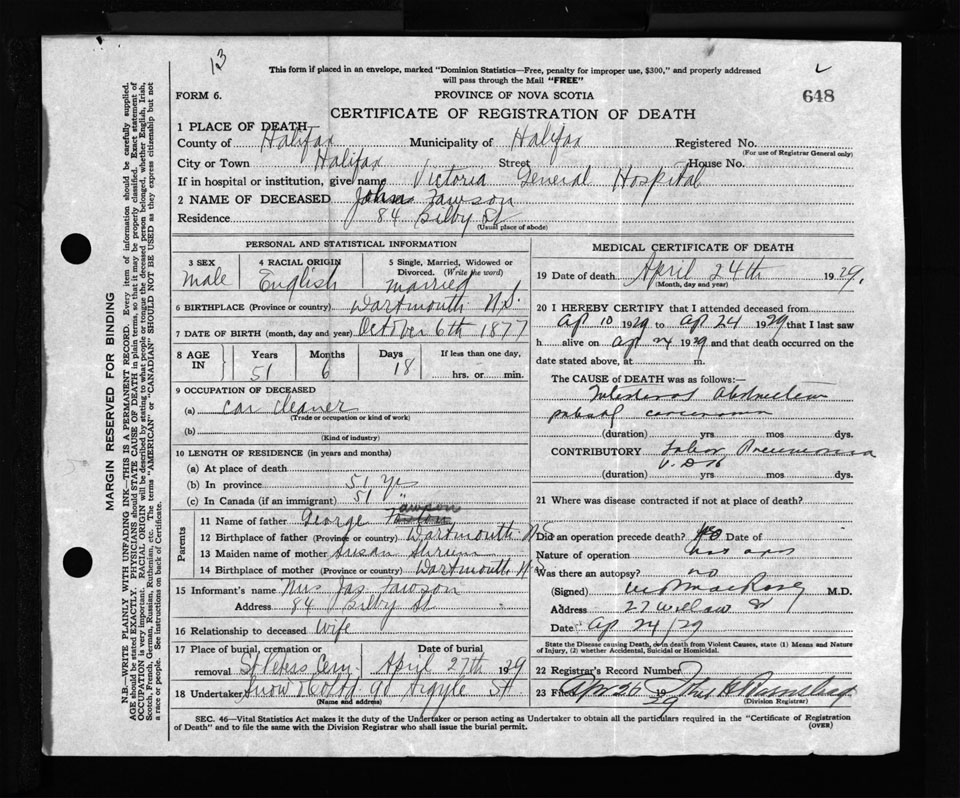 13
This form if placed in an envelope, marked "Dominion Statistics—Free, penalty for improper use, $300," and properly addressed
will pass through the Mail "FREE"
FORM 6.
PROVINCE OF NOVA SCOTIA
648
CERTIFICATE OF REGISTRATION OF DEATH
1 PLACE OF DEATH
County of Halifax Municipality of Halifax Registered No.
(For use of Registrar General only)
City or Town Halifax Street House No.
If in hospital or institution, give name Victoria General Hospital
2 NAME OF DECEASED Fawson
Residence 84 Bilby St
(Usual place of abode)
PERSONAL AND STATISTICAL INFORMATION
3 SEX 4 RACIAL ORIGIN 5 Single, Married, Widowed or
Divorced. (Write the word)
male English married
6 BIRTHPLACE (Province or country) Dartmouth N.S.
7 DATE OF BIRTH (month, day and year) October 6th 1877
8 AGE IN Years Months Days If less than one day,
51 6 18 hrs. or min.
9 OCCUPATION OF DECEASED
(a) car cleaner
(Trade or occupation or kind of work)
(b)
(Kind of industry)
10 LENGTH OF RESIDENCE (in years and months)
(a) At place of death
(b) In province 51 yrs
(c) In Canada (if an immigrant) 51 "
Parents
11 Name of father George Fawson
12 Birthplace of father (Province or country) Dartmouth N.S.
13 Maiden name of mother Susan
14 Birthplace of mother (Province or country) Dartmouth N.S.
15 Informant's name Mrs Jas Fawson
Address 84 Bilby St
16 Relationship to deceased wife
17 Place of burial, cremation or Date of burial
removal St Peters Cem April 27th 1929
18 Undertaker Snow & Co Ltd 90 Argyle St
(Name and address)
MEDICAL CERTIFICATE OF DEATH
19 Date of death April 24th 1929.
(Month, day and year)
20 I HEREBY CERTIFY that I attended deceased from
Ap 10 1929 to Ap 24 1929 that I last saw
h alive on Ap 24 1929 and that death occurred on the
date stated above, at m.
The CAUSE of DEATH was as follows:
Intestinal Obstruction
carcinoma
(duration) yrs mos dys.
CONTRIBUTORY Lobar Pneumonia
(duration) yrs mos dys.
21 Where was disease contracted if not at place of death?
Did an operation precede death? Date of
Nature of operation
Was there an autopsy? no
(Signed) M.D.
Address 27 Willow St
Date Ap 24/29
State the Disease causing Death, or in death from Violent Causes, state (1) Means and Nature
of Injury, (2) whether Accidental, Suicidal or Homicidal.
22 Registrar's Record Number
23 Filed Apr 26 1929
(Division Registrar)
SEC. 46—Vital Statistics Act makes it the duty of the Undertaker or person acting as Undertaker to obtain all the particulars required in the "Certificate of Registration
of Death" and to file the same with the Division Registrar who shall issue the burial permit.
(OVER)
MARGIN RESERVED FOR BINDING
N.B.—WRITE PLAINLY WITH UNFADING INK—THIS IS A PERMANENT RECORD. Every item of information should be carefully supplied.
AGE should be stated EXACTLY. PHYSICIANS should STATE CAUSE OF DEATH in plain terms, so that it may be properly classified. Exact statement of
OCCUPATION is very important. RACIAL ORIGIN will be described by stating to what people or race the deceased person belonged, whether English, Irish,
Scotch, French, German, Russian, Ruthenian, etc. The terms "AMERICAN" or "CANADIAN" SHOULD NOT BE USED as they express citizenship but not
a race or people. See instructions on back of Certificate.